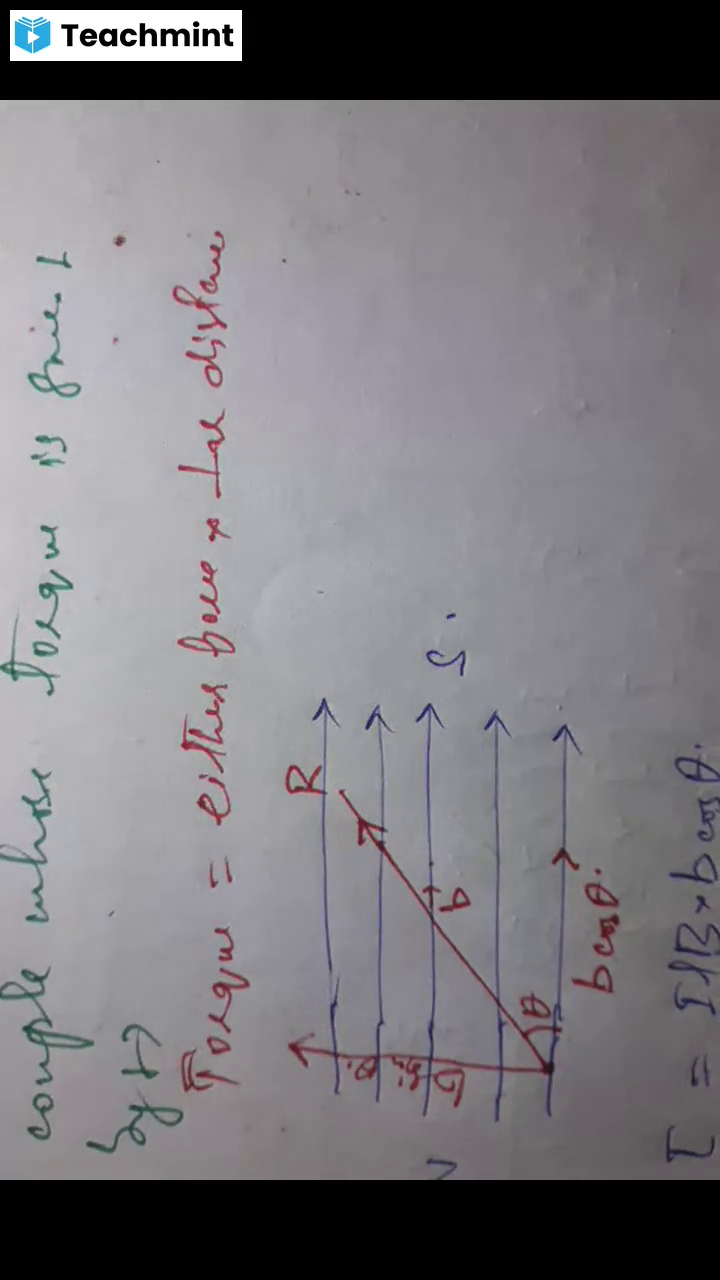 Teachmint
couple whose torque is
by ↦
Torque = either force × ⊥ar distance
R
b
θ
b cosθ.
b sin θ
S.
τ = |F₁| × b cosθ.